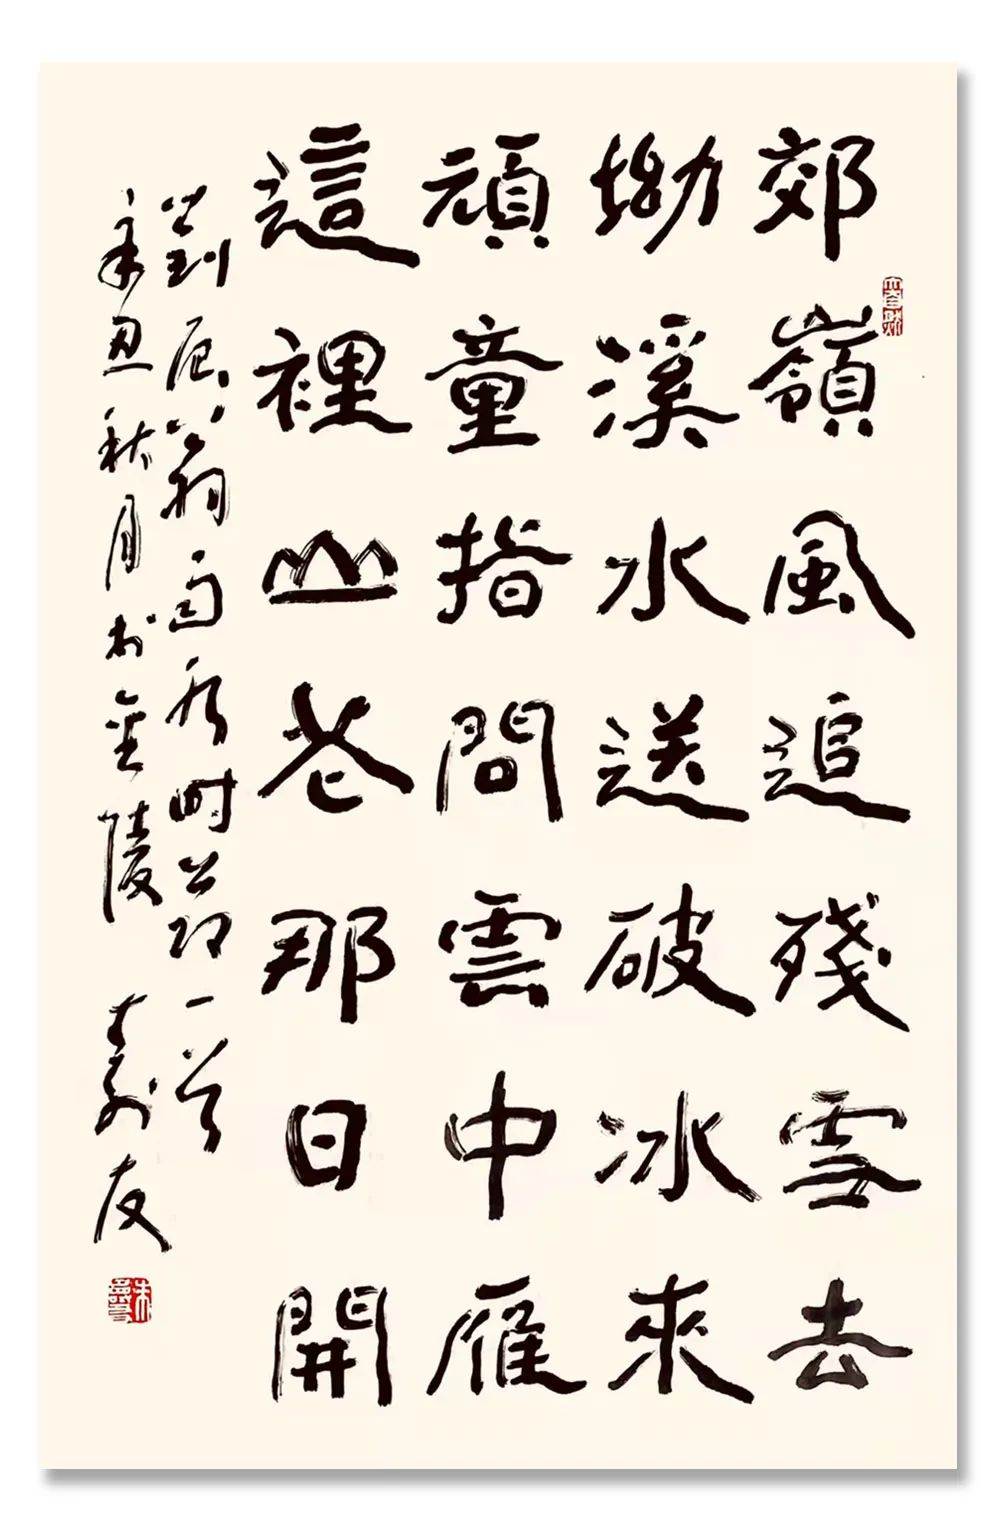 郊嶺風追殘雪去
坳溪水送破冰來
頑童指問雲中雁
這裡山花那日開
劉辰翁雨水时节一首
辛丑秋月於金陵 寿友